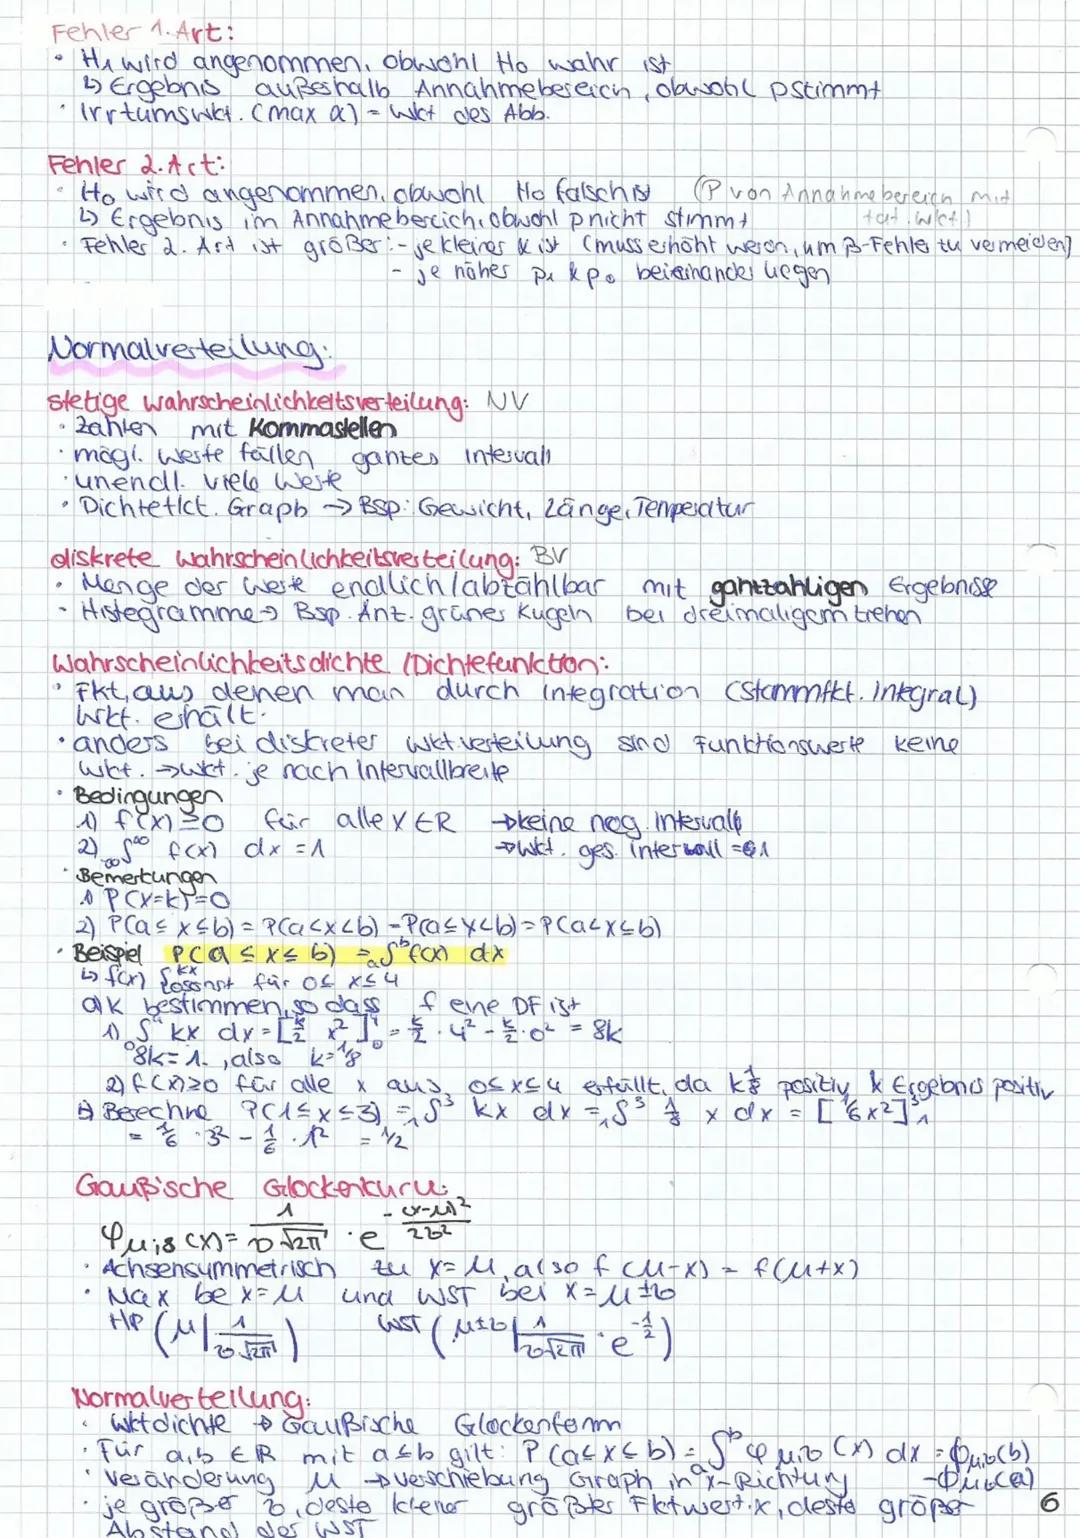 Fehler 1. Art:
• H₁ wird angenommen, obwohl H₀ wahr ist
↳ Ergebnis außerhalb Annahmebereich, obwohl p stimmt
• Irrtumswkt. (max α) = Wkt des Abb.
Fehler 2. Art:
• H₀ wird angenommen, obwohl H₀ falsch ist (P von Annahmebereich mit
tat. Wkt)
↳ Ergebnis im Annahmebereich, obwohl p nicht stimmt
• Fehler 2. Art ist größer: - je kleiner α ist (muss erhöht weren, um β-Fehler zu vermeiden)
- je näher p₁ & p₀ beieinander liegen
Normalverteilung:
stetige Wahrscheinlichkeitsverteilung: NV
• Zahlen mit Kommastellen
• mögl. Werte füllen ganzes Intervall
• unendl. viele Werte
• Dichtefkt. Graph → Bsp: Gewicht, Länge, Temperatur
diskrete Wahrscheinlichkeitsverteilung: BV
• Menge der Werte endlich/abzählbar mit ganzzahligen Ergebnisse
• Histogramme → Bsp. Anz. grüner Kugeln bei dreimaligem ziehen
Wahrscheinlichkeitsdichte /Dichtefunktion:
• Fkt, aus denen man durch Integration (Stammfkt. Integral)
Wkt. erhält.
• anders bei diskreter Wkt.verteilung sind Funktionswerte keine
Wkt. → Wkt. je nach Intervallbreite
• Bedingungen
1) f(x) ≥ 0 für alle x ∈ ℝ → keine neg. Intervalle
2) -∞∫∞ f(x) dx = 1 → Wkt. ges. Intervall = 1
• Bemerkungen
1) P(X=k) = 0
2) P(a ≤ x ≤ b) = P(a < x < b) = P(a ≤ x < b) = P(a < x ≤ b)
• Beispiel P(a ≤ x ≤ b) = a∫b f(x) dx
↳ f(x) { kx für 0 ≤ x ≤ 4
0 sonst
a) k bestimmen, so dass f eine DF ist
1) 0∫4 kx dx = [k/2 x²]⁴₀ = k/2 · 4² - k/2 · 0² = 8k
8k = 1, also k = 1/8
2) f(x) ≥ 0 für alle x aus 0 ≤ x ≤ 4 erfüllt, da k 1/8 positiv & Ergebnis positiv
b) Berechne P(1 ≤ x ≤ 3) = 1∫3 kx dx = 1∫3 1/8 x dx = [1/6 x²]³₁
= 1/6 · 3² - 1/6 · 1² = 1/2
Gauß'sche Glockenkurve:
φμ;σ (x) = 1/(σ√2π) · e^(-(x-μ)²/2σ²)
• Achsensymmetrisch zu x = μ, also f(μ-x) = f(μ+x)
• Max be x = μ und WST bei x = μ ± σ
HP (μ | 1/(σ√2π)) WST (μ±σ | 1/(σ√2π) · e^(-1/2))
Normalverteilung:
• Wktdichte → Gaußische Glockenform
• Für a,b ∈ ℝ mit a ≤ b gilt: P(a ≤ x ≤ b) = a∫b φμ;σ (x) dx = Φμ;σ(b)
- Φμ;σ(a)
• Veränderung μ → Verschiebung Graph in x-Richtung
• je größer σ, desto kleiner größter Fktwert x, desto größer
Abstand der WST
6